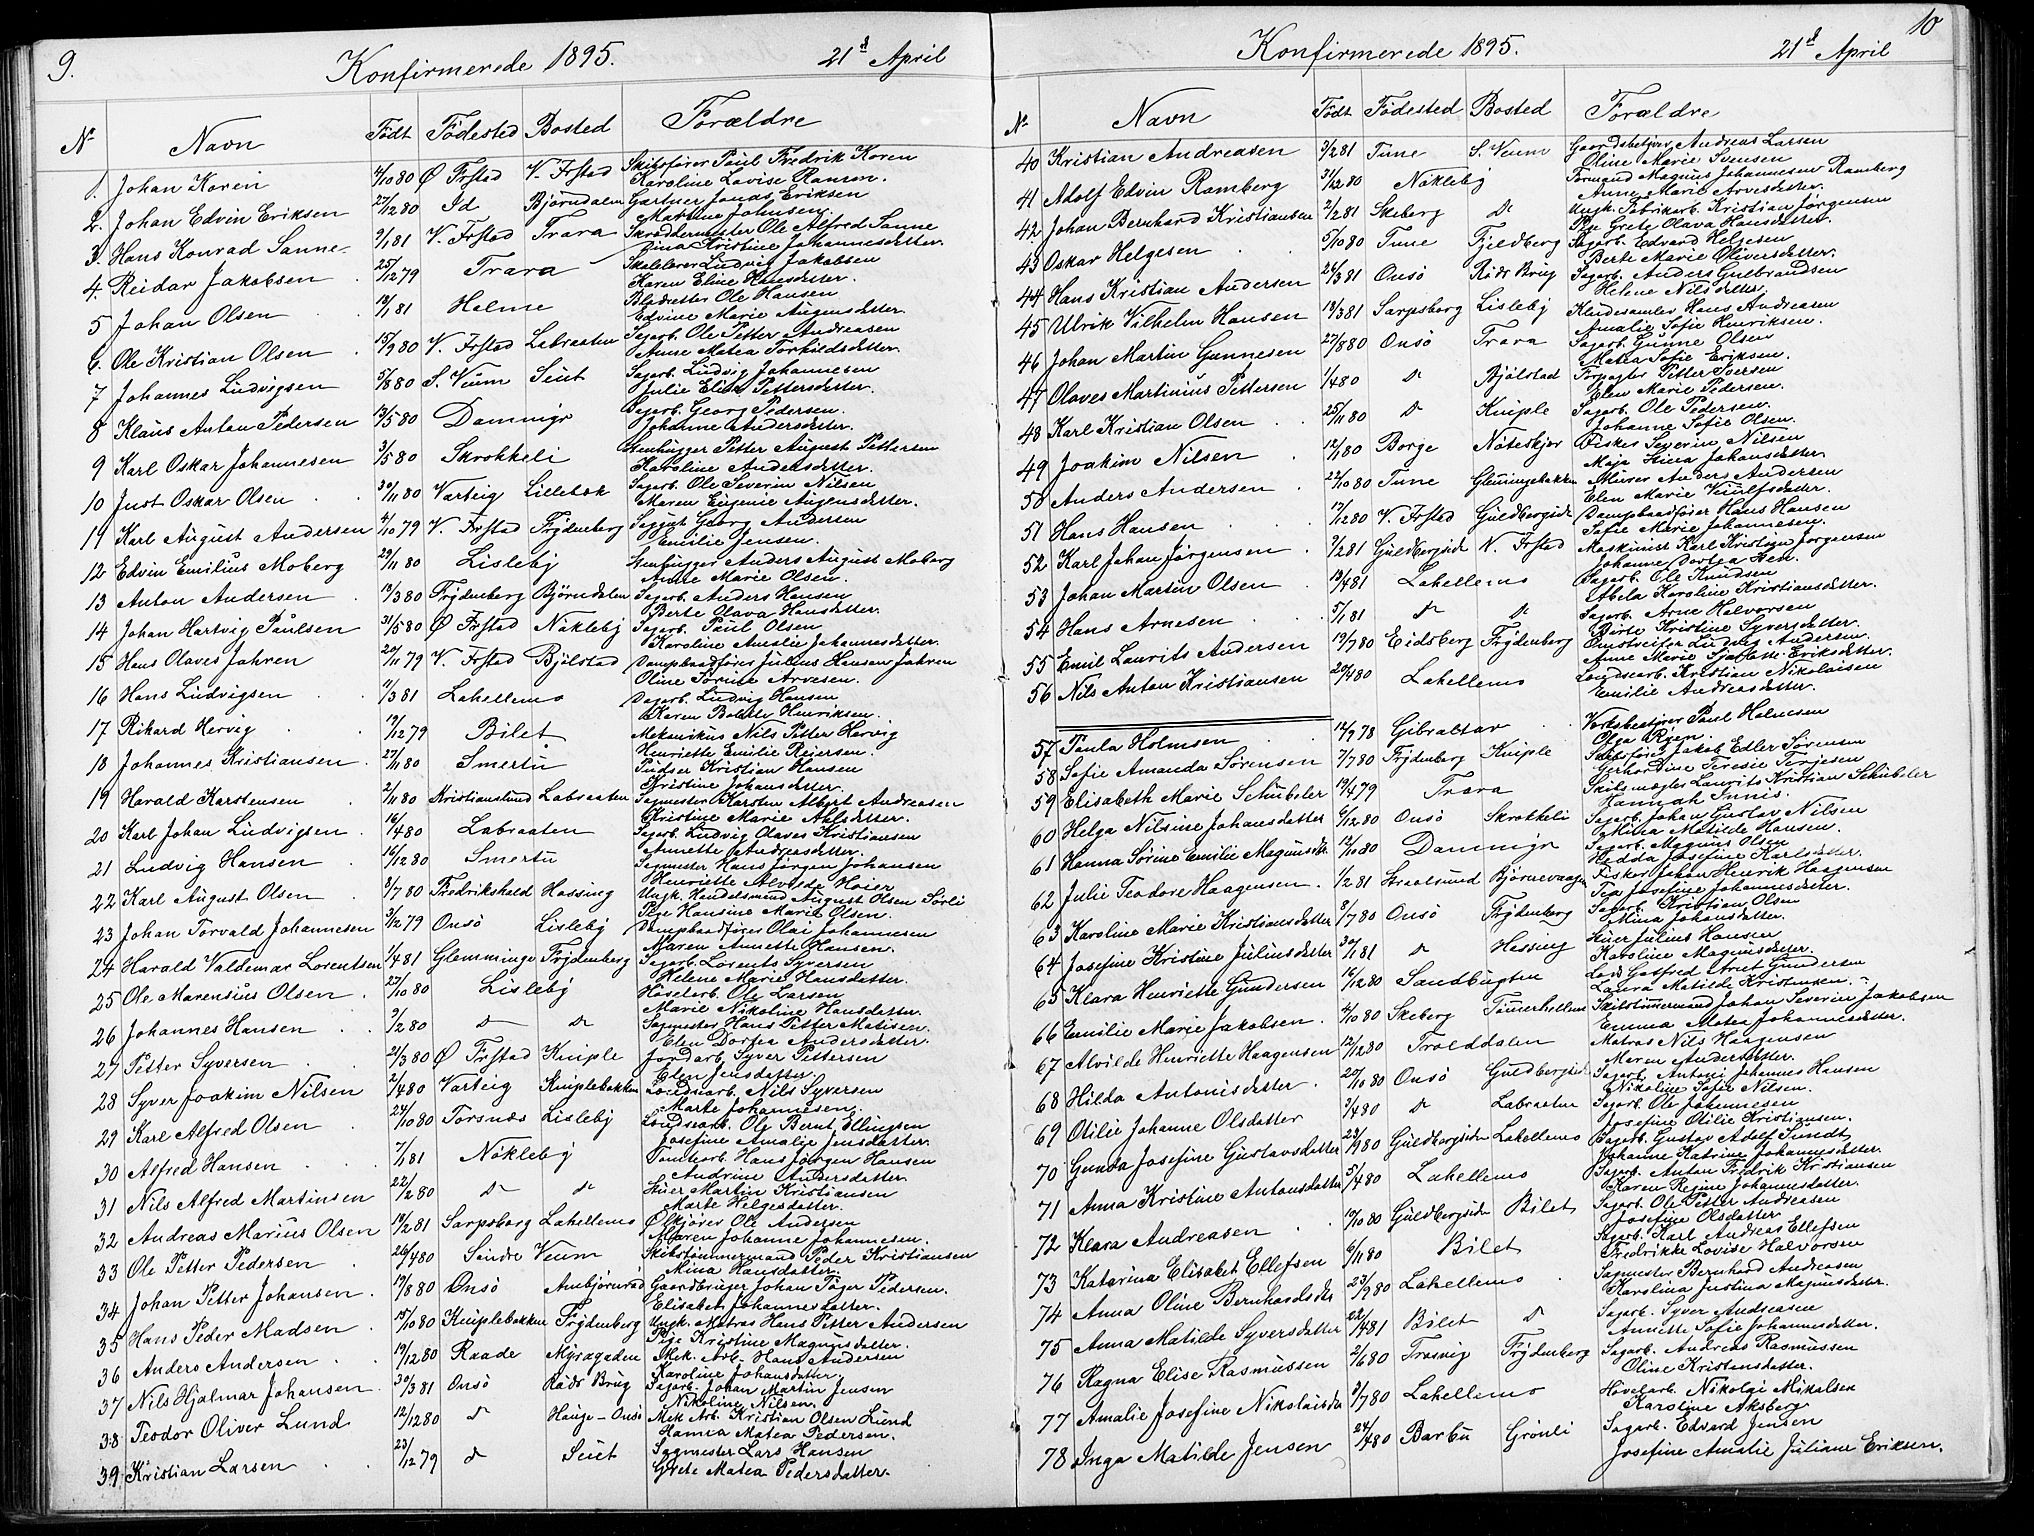 9.
Konfirmerede 1895.
21d April
No Navn Födt Födested Bosted Forældre
1. Johan Koren 4/10 80 Ø Frstad V. Frstad Skibsförer Paul Fredrik Koren
Karoline Lovise Ramm.
2. Johan Edvin Eriksen 27/12 80 Id Bjørndalen Gartner Jonas Eriksen
Mathine Johnsen
3. Hans Konrad Sanne 9/1 81 V. Frstad Trara Skræddermester Ole Alfred Sanne
Zina Kristine Johannesdetter.
4. Reidar Jakobsen 25/12 79 Trara Ludvig Jakobsen
Karen Eline Hansdetter.
5 Johan Olsen 18/1 81 Helme Ole Hansen
Edvine Marie
6. Ole Kristian Olsen 15/9 80 V. Frstad Labraaten Sagarb. Ole Petter Andreasen
Anne Matea Torkildsdetter.
7 Johannes Ludvigsen 5/8 80 S. Veum Seut Sagarb. Ludvig Johannesen
Julie Elisa Pettersdetter.
8 Klaus Anton Pedersen 13/5 80 Dammyr Sagarb. Georg Pedersen.
Johanne Andersdetter.
9 Karl Oskar Johannesen 3/5 80 Skrokkeli Stenhugger Petter August Pettersen
Karoline Andersdetter.
10 Just Oskar Olsen 30/11 80 Varteig Lillebæk Sagarb. Ole Severin Nilsen
Maren Eugenie
11 Karl August Andersen 4/10 79 V. Frstad Frydenberg Georg Andersen
Emilie Jensen.
12 Edvin Emilius Moberg 29/11 80 Lisleby Stenhugger Anders August Moberg
Anne Marie Olsen.
13 Anton Andersen 13/3 80 Frydenberg Bjørndalen Sagarb. Anders Hansen
Berte Olava Hansdetter.
14 Johan Hartvig Paulsen 31/5 80 Ø Frstad Nökleby Sagarb. Paul Olsen
Karoline Amalie Johannesdetter.
15 Hans Olaves Jahren 20/11 79 V. Frstad Bjölstad Dampbaadförer Julius Hansen Jahren
Oline Sörine Arvesen.
16 Hans Ludvigsen 11/3 81 Lahellemo Dagarb. Ludvig Hansen
Karen Bolette Henriksen.
17 Rikard Hervig 17/12 79 Bilet Mekanikus Nils Petter Hervig
Henriette Emilie Reiersen.
18 Johannes Kristiansen 27/11 80 Smertu Pudser Kristian Hansen
Kristine Johansdetter.
19 Harald Karstensen 2/11 80 Kristianslund Labraaten Sagmester Karsten Albert Andreasen
Christine Marie
20 Karl Johan Ludvigsen 16/4 80 Labraaten Sagarb. Ludvig Olaves Kristiansen
Annette Andreasdetter.
21 Ludvig Hansen 16/12 80 Smertu Sagmester Hans Jørgen Johansen
Henriette Alvilde Høier
22 Karl August Olsen 3/7 80 Fredrikshald Hassing Ungk. Handelsmand August Olsen Sørli
Pige Hansine Marie Olsen.
23 Johan Torvald Johannesen 3/12 79 Onsö Lisleby Dampbaadförer Olai Johannesen
Maren Annette Hansen.
24 Harald Valdemar Lorentsen 1/4 81 Glemminge Frydenberg Sagarb. Lorents Syversen
Helene Marie Hansdatter.
25 Ole Marensius Olsen 27/10 80 Lisleby Høvelarb. Ole Larsen
Marie Nikoline Hansdatter.
26 Johannes Hansen 9/2 80 do do Sagmester Hans Petter Matisen
Elen Dortea Andersdetter.
27 Petter Syversen 21/3 80 Ø Frstad Kniple Jordarb. Syver Pettersen
Elen Jensdatter
28 Syver Joakim Nilsen 7/4 80 Varteig Kniplebakken Londsarb. Nils Syversen
Marte Johannesen.
29 Karl Alfred Olsen 24/10 80 Torsnæs Lisleby Londsarb. Ole Bernt Ellingsen
Josefine Amalie Jensdatter.
30 Alfred Hansen 7/1 81 Nökleby Tomtearb. Hans Jørgen Hansen
Andrine Andersdetter.
31 Nils Alfred Martinsen 22/2 80 do do Stuer Martin Kristiansen
Marte Helgesdatter.
32 Andreas Marius Olsen 19/2 81 Sarpsborg Lahellemo Ølkjører Ole Andersen
Maren Johanne Johannesen.
33 Ole Petter Pedersen 26/4 80 Söndre Veum Skibstömmermand Peder Kristiansen
Mina Hansdatter.
34 Johan Petter Johansen. 19/8 80 Onsö Ambjörnröd Gaardbruger Johan Pöger Pedersen.
Elisabet Johannesdatter.
35 Hans Peder Madsen 15/10 80 Kniplebakken Frydenberg Ungk. Matros Hans Petter Andersen
Pige Kristine Magnusdatter.
36 Anders Andersen 19/12 80 Raade Myragaden Mek. Arb. Hans Andersen
Karoline Johansdatter.
37 Nils Hjalmar Johansen 30/3 81 Onsö Röds Brug Sagarb. Johan Martin Jensen
Nikoline Nilsen.
38 Teodor Oliver Lund 12/12 80 do Hauge-Onsö Mek Arb. Kristian Olsen Lund
Hanna Matea Pedersen.
39. Kristian Larsen 23/12 79 do Seut Sagmester Lars Hansen
Grete Matea Pedersdatter.
10
Konfirmerede 1895.
21d April
No Navn Födt Födested Bosted Forældre
40 Kristian Andreasen 3/2 81 Tune S. Veum Gaardsbestyrer Andreas Larsen
Oline Marie Svensen
41 Adolf Edvin Ramberg 31/12 80 Nökleby Formand Magnus Johannesen Ramberg
Anne Marie Arvesdetter.
42 Johan Bernhard Kristiansen 2/2 81 Skeberg do Ungk. Fabrikarb. Kristian Jørgensen
Pige Grete Olava Hansdetter.
43 Oskar Helgesen 5/10 80 Tune Fjeldberg Sagarb. Edvard Helgesen
Berte Marie Oliversdetter.
44 Hans Kristian Andersen 24/3 81 Onsö Röds Brug Sagarb. Anders Gulbrandsen
Helene Nilsdetter.
45 Ulrik Vilhelm Hansen 13/3 81 Sarpsborg Lisleby Kludesamler Hans Andreasen
Amalie Sofie Henriksen.
46 Johan Martin Gunnesen 27/8 80 Onsö Trara Sagarb. Gunne Olsen
Matea Sofie Eriksen.
47 Olaves Martinius Pettersen 1/4 80 do Bjölstad Forpagter Petter Iversen
Elen Marie Pedersen.
48 Karl Kristian Olsen 25/11 80 do Kniple Sagarb. Ole Pedersen.
Johanne Sofie Olsen.
49 Joakim Nilsen 12/1 80 Borge Nöteskjær Fisker Severin Nilsen
Maja Stina Johansdetter
50 Anders Andersen 22/10 80 Tune Glemmingebakken Murer Anders Andersen
Elen Marie
51 Hans Hansen 17/12 80 V. Frstad Guldbergsiden Dampbaadförer Hans Hansen
Sofie Marie Johannesen.
52 Karl Johan Jørgensen 7/2 81 Guldbergsiden V. Frstad Maskinist Karl Kristian Jørgensen
Johanne Dortea
53 Johan Martin Olsen 19/4 81 Lahellemo Sagarb. Ole Knudsen
Abela Karoline Kristiansdetter.
54 Hans Arnesen 5/1 81 do do Sagarb. Arne Halvorsen
Birte Kristine Syversdetter.
55 Emil Laurits Andersen 19/7 80 Eidsberg Frydenberg Ludvig Andersen.
Anne Marie Eriksdetter.
56 Nils Anton Kristiansen 20/4 80 Lahellemo Londsarb. Kristian Nikolaisen
Emilie Andreasdetter.
57 Paula Holmsen 12/9 78 Gibraltar Verksbestyrer Paul Holmsen
Olga
58 Sofie Amanda Sørensen 7/7 80 Frydenberg Kniple Skibsförer Jakob Edler Sørensen
Gerhardine Teresie Terjesen
59 Elisabeth Marie Schübeler 19/4 79 Trara Skibsmægler Laurits Kristian Schübeler
Hannah Innis.
60 Helga Nilsine Johansdatter 6/12 80 Onsö Skrokkeli Sagarb. Johan Gustav Nilsen
Mina Matilde Hansen.
61 Hanna Sörine Emilie Magnusdtr. 12/10 80 Dammyr Sagarb. Magnus Olsen
Hedda Josefine Karlsdetter.
62 Julie Teodore Haagensen. 1/2 81 Straalsund Bjørnevaagen Fisker Johan Henrik Haagensen
Tea Josefine Johannesdetter.
63 Karoline Marie Kristiansdatter 8/7 80 Onsö Frydenberg Sagarb. Kristian Olsen
Mina Johansdatter.
64 Josefine Kristine Juliusdatter 30/1 81 do Hassing Stuer Julius Hansen
Karoline Magnusdatter.
65 Klara Henriette Gundersen 16/12 80 Sandbugten Lods Gotfred Arnt Gundersen
Laura Matilde Kristensen.
66 Emilie Marie Jakobsen. 4/10 80 Skeberg Skibstömmermand Johan Severin Jakobsen
Emma Matea Johannesdatter.
67 Alvilde Henriette Haagensen 12/12 80 Trolddalen Matros Nils Haagensen
Maren Andersdatter.
68 Hilda Antonisdatter. 20/10 80 Onsö Guldbergsiden Sagarb. Antoni Johannes Hansen
Nikoline Sofie Nilsen.
69 Otilie Johanne Olsdatter 3/4 80 do Labraaten Sagarb. Ole Johannesen
Josefine Otilie Kristiansen.
70 Gunda Josefine Gustavsdatter 23/9 80 Guldbergsiden Lahellemo Sagarb. Gustav Adolf Sundt
Johanne Katrine Johannesdatter.
71 Anna Kristine Antonsdatter 5/4 80 Lahellemo Sagarb. Anton Fredrik Kristiansen
Karen Regine Johannesdatter.
72 Klara Andreasen 19/10 80 Guldbergsiden Bilet Sagarb. Ole Petter Andreasen
Josefine Olsdatter
73 Katarina Elisabet Ellefsen 6/11 80 Bilet Sagarb. Karl Andreas Ellefsen
Fredrikke Lovise Halvorsen
74 Anna Oline Bernhardsdtr 23/9 80 Lahellemo Sagmester Bernhard Andreasen
Karolina Justina Magnusdatter.
75 Anna Matilde Syversdatter 22/4 81 Bilet do Sagarb. Syver Andreasen
Annette Sofie Johannesdatter.
76 Ragna Elise Rasmussen 2/6 80 Trosvig Frydenberg Sagarb. Andreas Rasmussen
Oline Kristensdatter.
77 Amalie Josefine Nikolaisdtr 3/7 80 Lahellemo Høvelarb. Nikolai Mikalsen
Karoline Aksberg
78 Inga Matilde Jensen 24/4 80 Barbu Grönli Sagarb. Edvard Jensen
Josefine Amalie Juliane Eriksen.